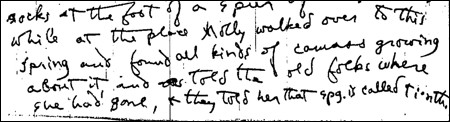 rocks at the foot of a spur of
while at the place Molly walked over to this
spring and found all kinds of camass growing
about it and told the old folks where
she had gone, & they told her that spg. is called